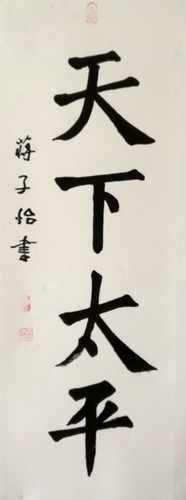 天下太平
蒋子怡書